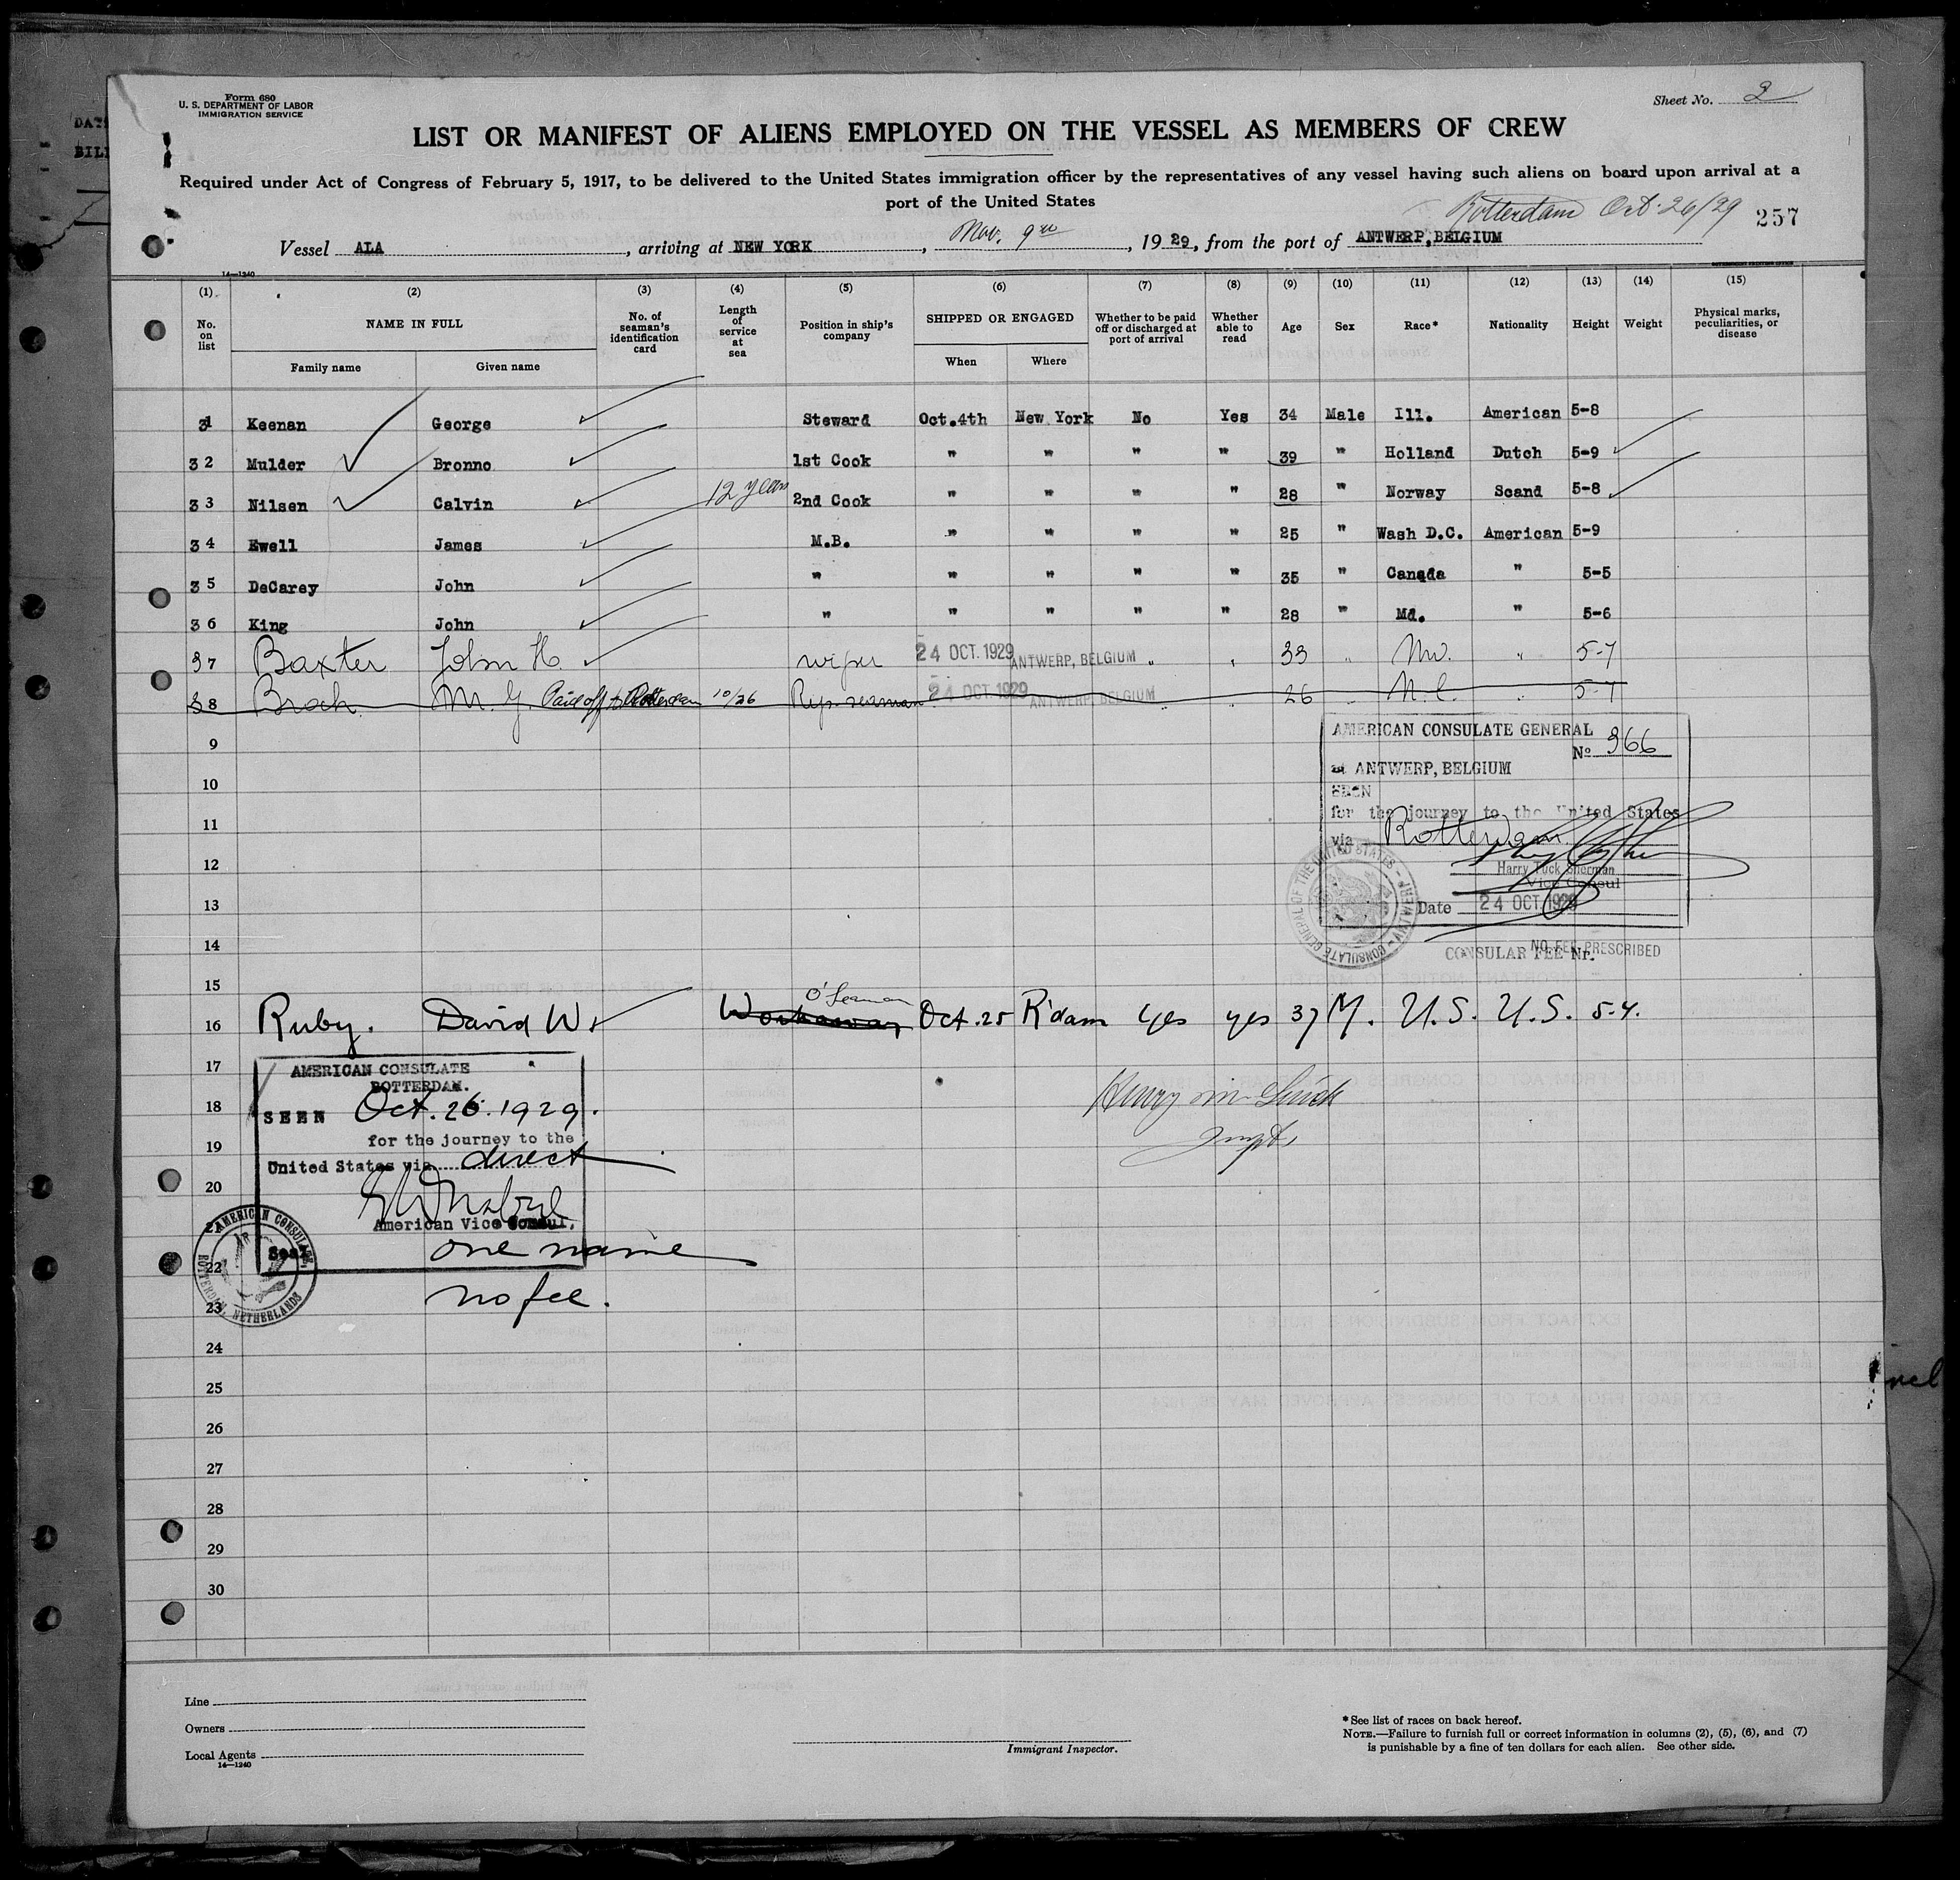 Form 680
U. S. DEPARTMENT OF LABOR
IMMIGRATION SERVICE
Sheet No. 2
LIST OR MANIFEST OF ALIENS EMPLOYED ON THE VESSEL AS MEMBERS OF CREW
Required under Act of Congress of February 5, 1917, to be delivered to the United States immigration officer by the representatives of any vessel having such aliens on board upon arrival at a
port of the United States
Rotterdam Oct. 26/29 257
Vessel ALA, arriving at NEW YORK, Nov. 9, 1929, from the port of ANTWERP, BELGIUM
14—1240
(1) (2) (3) (4) (5) (6) (7) (8) (9) (10) (11) (12) (13) (14) (15)
No. on list NAME IN FULL Family name Given name No. of seaman's identification card Length of service at sea Position in ship's company SHIPPED OR ENGAGED When Where Whether to be paid off or discharged at port of arrival Whether able to read Age Sex Race* Nationality Height Weight Physical marks, peculiarities, or disease
31 Keenan George Steward Oct.4th New York No Yes 34 Male Ill. American 5-8
32 Mulder Bronno 1st Cook " " " " 39 " Holland Dutch 5-9
33 Nilsen Calvin 12 years 2nd Cook " " " " 28 " Norway Scand 5-8
34 Ewell James M.B. " " " " 25 " Wash D.C. American 5-9
35 DeCarey John " " " " " 35 " Canada " 5-5
36 King John " " " " " 28 " Md. " 5-6
37 Baxter John H. wiper 24 OCT. 1929 ANTWERP, BELGIUM " " 33 " " 5-7
38 M. G. Paid off Rotterdam 10/26 seaman 24 OCT. 1929 ANTWERP, BELGIUM " " 26 " N.C. " 5-7
9
10
11
12
13
14
15
AMERICAN CONSULATE GENERAL
No 366
at ANTWERP, BELGIUM
SEEN
for the journey to the United States
via Rotterdam
Harry Tuck Sherman
Vice Consul
Date 24 OCT. 1929
CONSULAR FEE Nr. NO FEE PRESCRIBED
O'Seaman
16 Ruby. David W. Workaway Oct. 25 R'dam Yes yes 37 M. U.S. U.S. 5-4.
17
18
19
20
22
23
AMERICAN CONSULATE
ROTTERDAM.
SEEN Oct. 26. 1929.
for the journey to the
United States via direct
American Vice Consul.
Seal
one name
no fee.
AMERICAN CONSULATE ROTTERDAM, NETHERLANDS
24
25
26
27
28
29
30
Line
Owners
Local Agents
14—1240
Immigrant Inspector.
*See list of races on back hereof.
NOTE.—Failure to furnish full or correct information in columns (2), (5), (6), and (7)
is punishable by a fine of ten dollars for each alien. See other side.